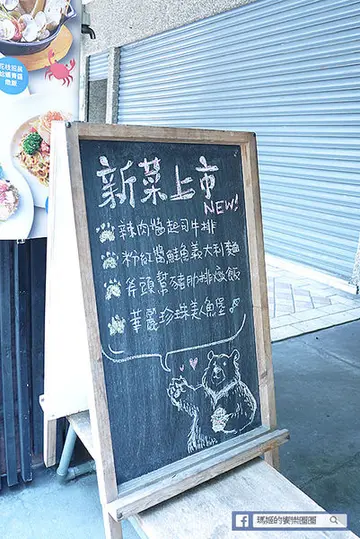 新菜上市
NEW!
辣肉醬起司牛排
粉紅醬鮭魚義大利麵
斧頭幫豬肋排燉飯
華麗珍珠美人魚堡
瑪姬的寰樂圈圈